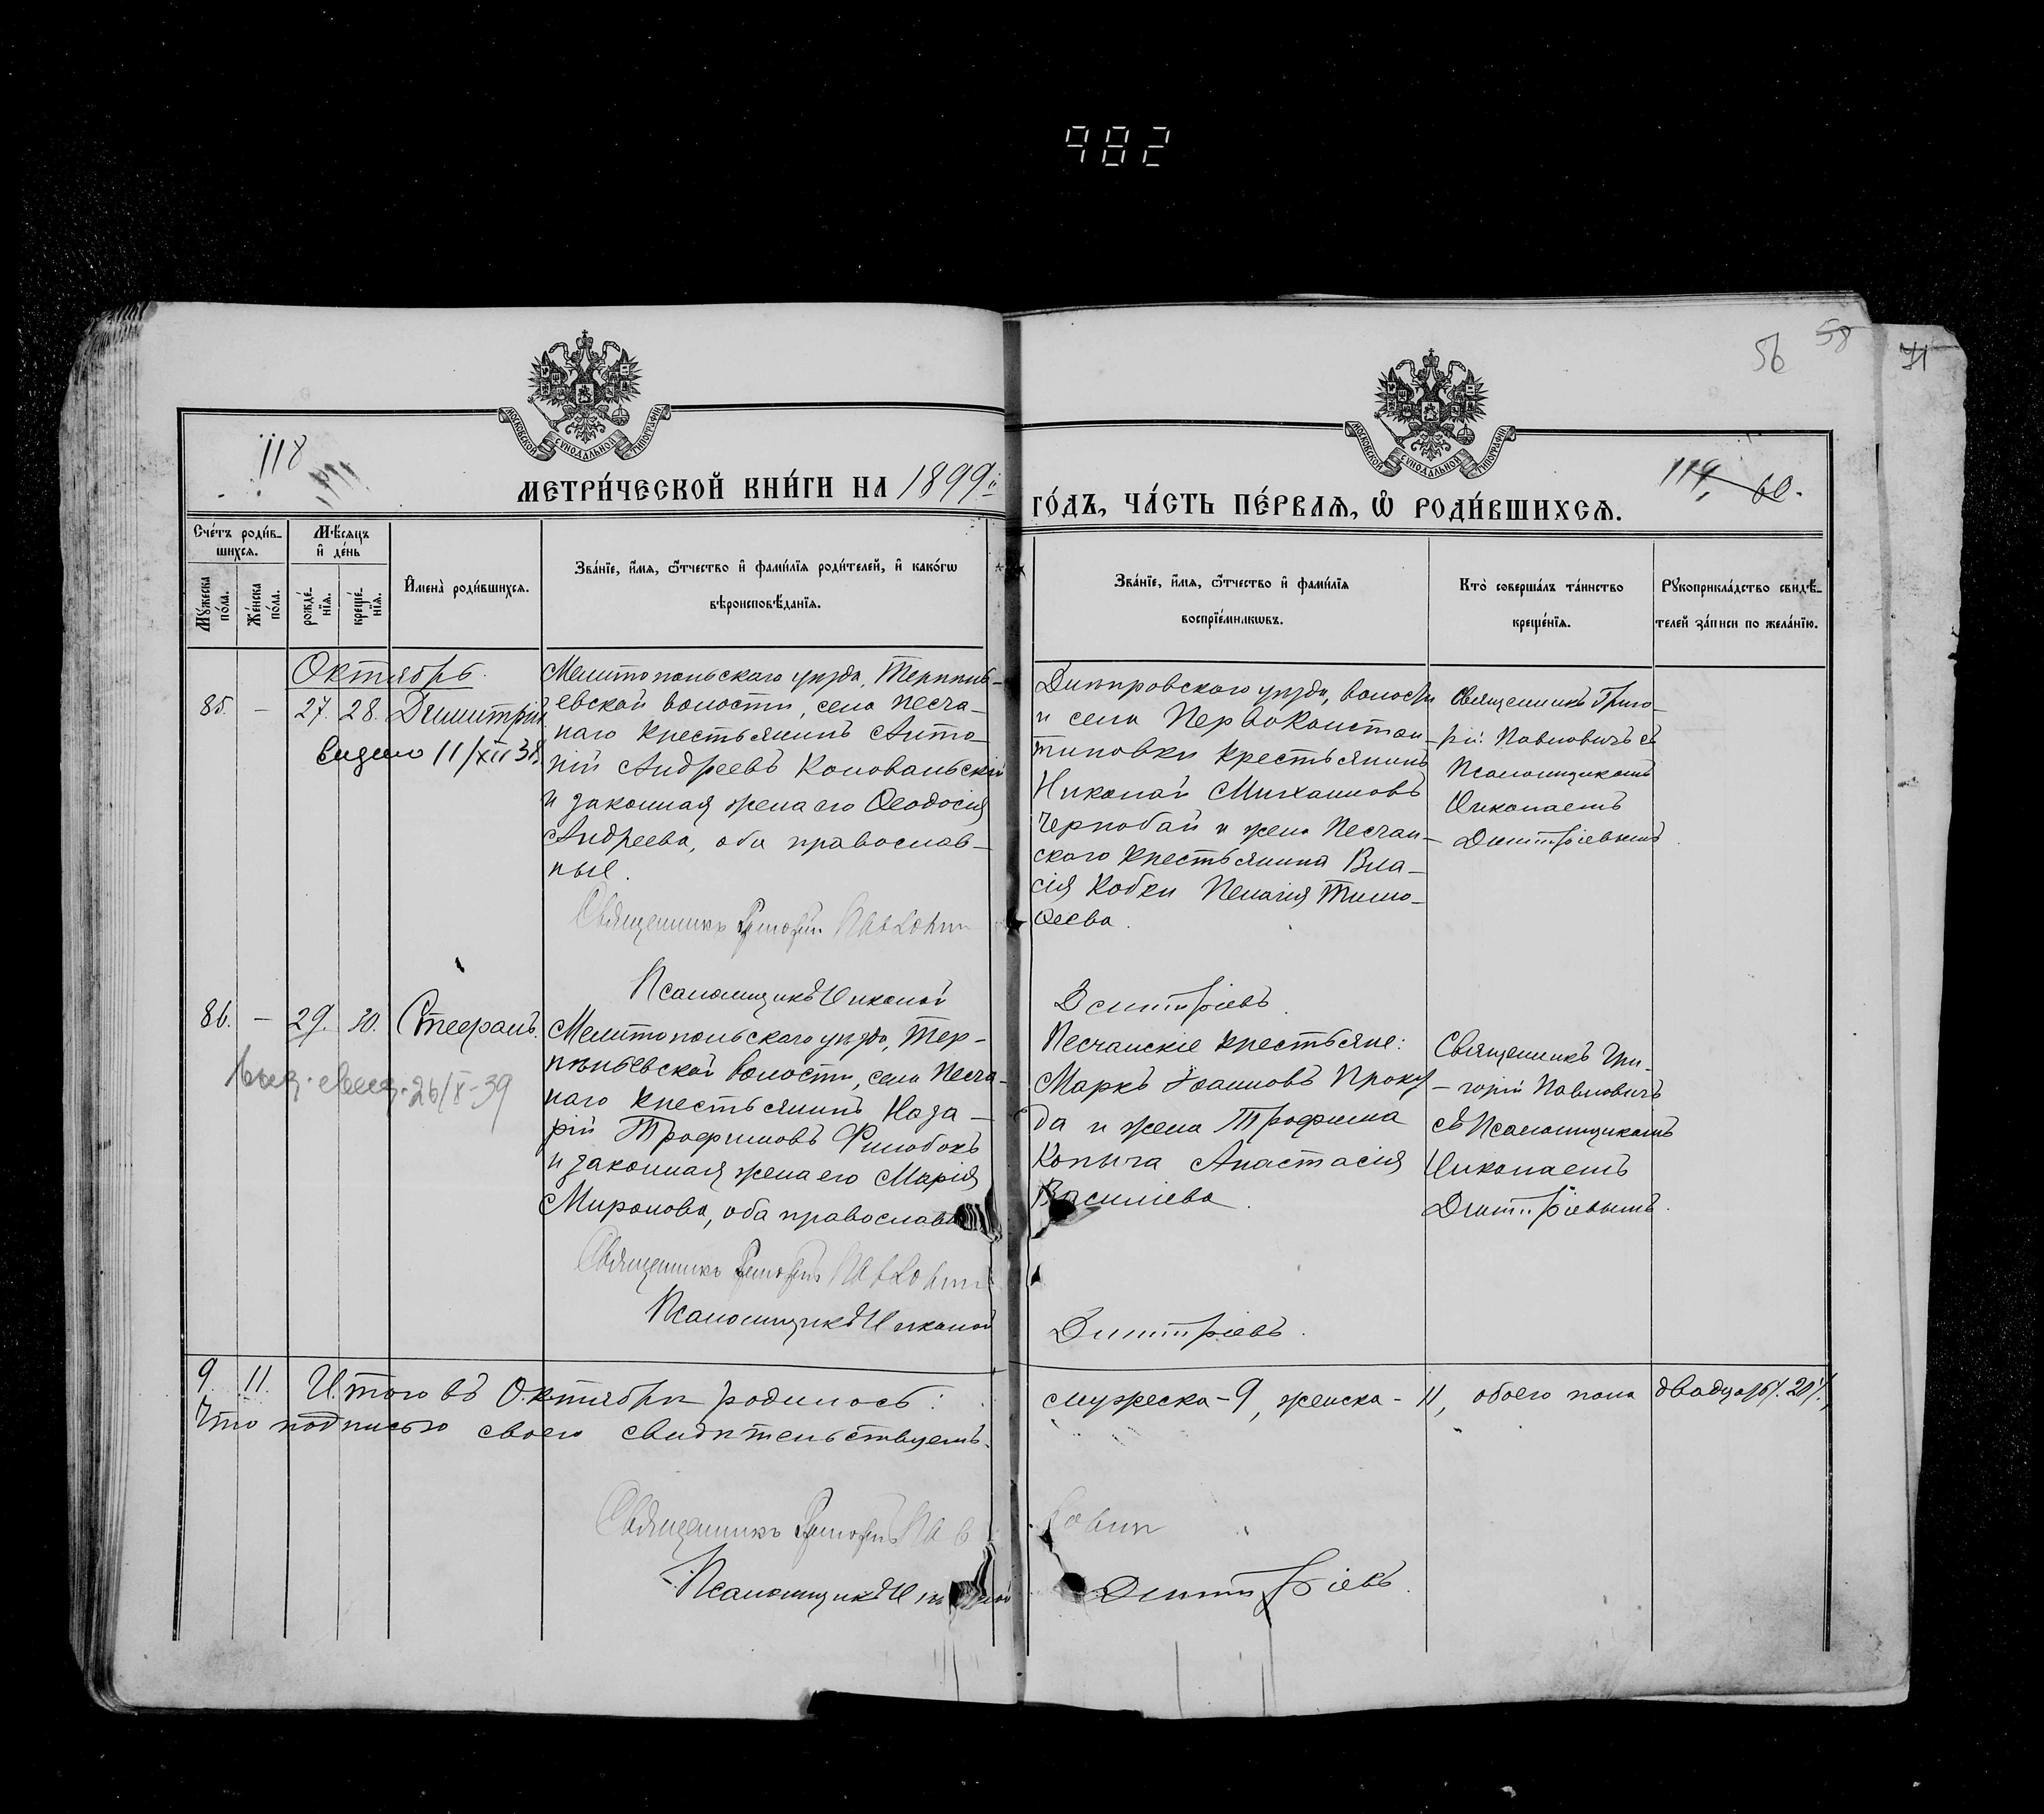 982
56 58
71
118
МОСКОВСКОЙ СѴНОДАЛЬНОЙ ТИПОГРАФІИ
МОСКОВСКОЙ СѴНОДАЛЬНОЙ ТИПОГРАФІИ
119, 60.
МЕТРИ́ЧЕСКОЙ КНИ́ГИ НА 1899й
ГО́ДЪ, ЧА́СТЬ ПЕ́РВАѦ, Ѡ҆ РОДИ́ВШИХСѦ.
Сче́тъ роди́в-
шихсѧ.
Мꙋ́жеска по́ла.
Же́нска по́ла.
Мѣ́сѧцъ
и҆ де́нь
рожде́-
нїѧ.
креще́-
нїѧ.
И҆мена̀ роди́вшихсѧ.
Зва́нїе, и҆́мѧ, ѻ҆́тчество и҆ фами́лїѧ роди́телей, и҆ како́гѡ
вѣроисповѣ́данїѧ.
Зва́нїе, и҆́мѧ, ѻ҆́тчество и҆ фами́лїѧ
воспрїе́мникѡвъ.
Кто̀ соверша́лъ та́инство
креще́нїѧ.
Рꙋкоприкла́дство свидѣ́-
телей за́писи по жела́нїю.
Октябрь.
85. — 27. 28. Димитрій
выдано 11/XII 38.
Мелитопольскаго уѣзда, Терпѣнь-
евской волости, села Песча-
наго крестьянинъ Анто-
ній Андреевъ Коновальскій
и законная жена его Ѳеодосія
Андреева, оба православ-
ные.
Священникъ Григорій Павлович
Псаломщикъ Николай
Днѣпровскаго уѣзда, волости
и села Первоконстан-
тиновки крестьянинъ
Николай Михаиловъ
Чернобай и жена песчан-
скаго крестьянина Вла-
сія Кобки Пелагія Тимо-
ѳеева.
Дмитріевъ.
Священникъ Григо-
рій Павловичъ съ
Псаломщикомъ
Николаемъ
Димитріевымъ
86. — 29. 30. Стефанъ.
26/X-39
Мелитопольскаго уѣзда, Тер-
пѣньевской волости, села Песча-
наго крестьянинъ Наза-
рій Трофимовъ Филобокъ
и законная жена его Марія
Миронова, оба православ
Священникъ Григорій Павлович
Псаломщикъ Николай
Песчанскіе крестьяне:
Маркъ Іоанновъ Проку-
да и жена Трофима
Копыча Анастасія
Василіева.
Димитріевъ.
Священникъ Гри-
горій Павловичъ
съ Псаломщикомъ
Николаемъ
Димитріевымъ.
9. 11. Итого въ Октябрѣ родилось:
мужеска - 9, женска - 11, обоего пола двадцать. 20.
Что подписью своею свидѣтельствуемъ.
Священникъ Григорій Павлович
Псаломщикъ Николай Димитріевъ.